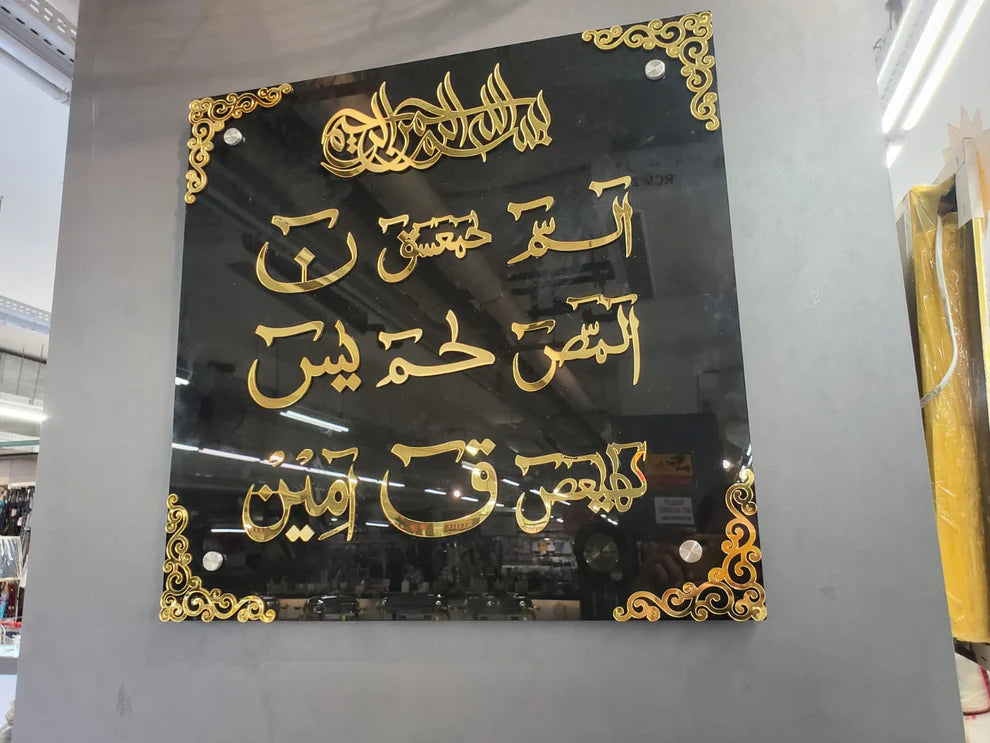 بسم الله الرحمن الرحيم
الٓمّ حٓمٓعٓسٓقٓ نٓ
الٓمّٓصٓ حٰمٓ يٰسٓ
كٓهٰيٰعٓصٓ قٓ اٰمِيْنْ